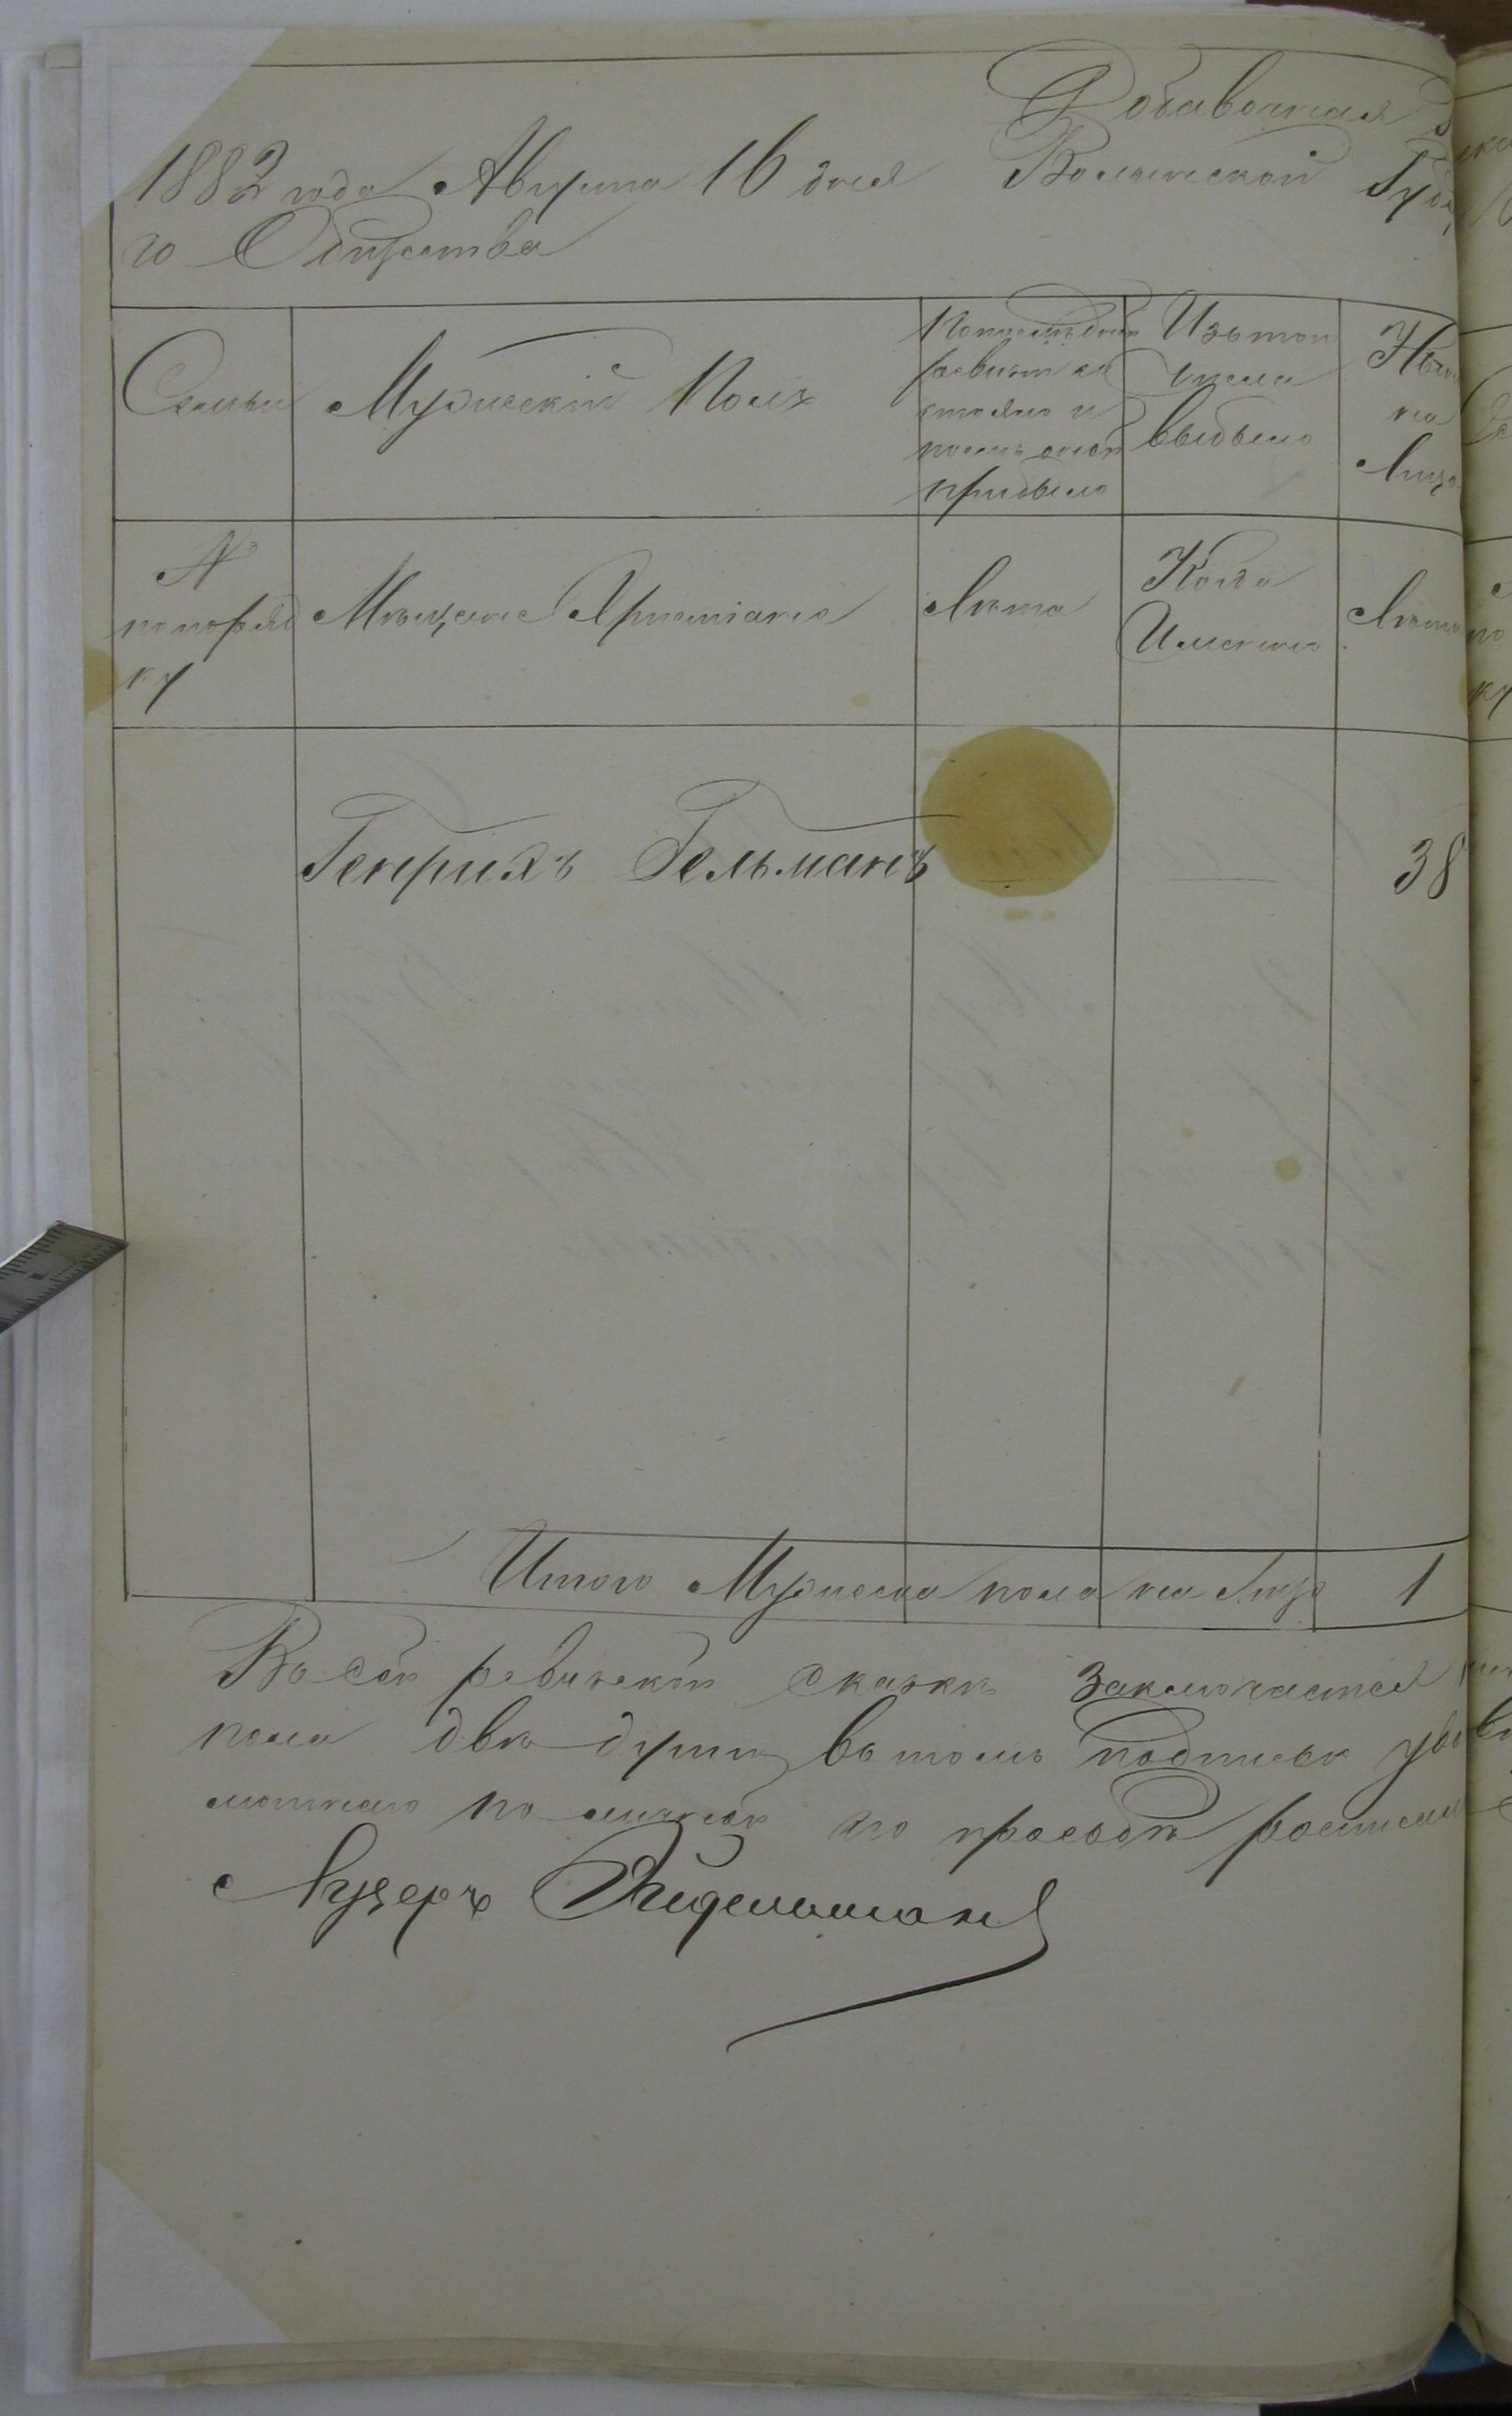 Добавочная
1882 года Августа 16 дня Волынской Губ
го Общества
Семьи
Мужеский Полъ
По последней
ревизіи со
стояло и
после оной
прибыло
Изъ того
числа
выбыло
Ныне
на
Лицо
№
по поряд
ку
Мещане Христіане
Лета
Когда
Именно
Лета
Генрихъ Гельманъ — — 38
Итого Мужеска пола на Лицо 1
Въ сей ревизской сказке заключается
пола две души въ томъ подписью
по личной его просьбе росписался
Луцеръ